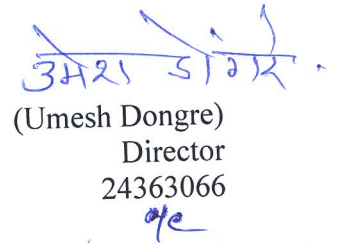 उमेश डोंगरे.
(Umesh Dongre)
Director
24363066